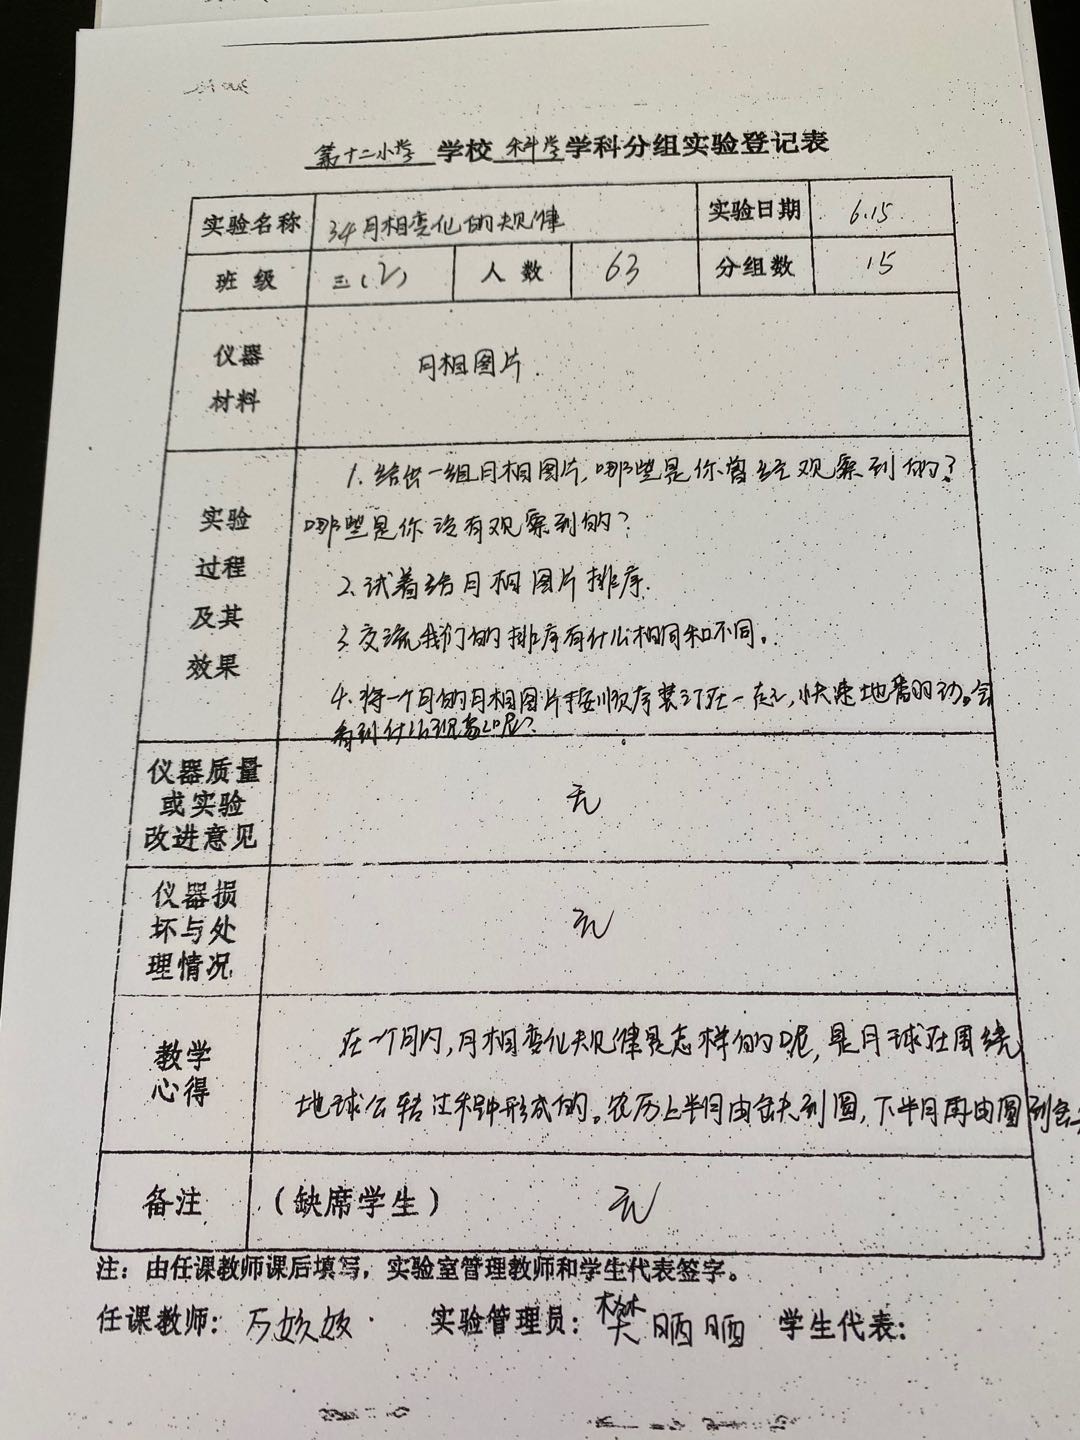 第十二小学 学校 科学 学科分组实验登记表
实验名称 34月相变化的规律 实验日期 6.15
班级 三(2) 人数 63 分组数 15
仪器材料 月相图片.
实验过程及其效果
1. 给出一组月相图片,哪些是你曾经观察到的?
哪些是你没有观察到的?
2.试着给月相图片排序.
3.交流我们的排序有什么相同和不同。
4.将一个月的月相图片按顺序装订在一起,快速地番羽动。会
看到什么现象呢?
仪器质量或实验改进意见 无
仪器损坏与处理情况 无
教学心得
在一个月内,月相变化规律是怎样的呢,是月球在围绕
地球公转过程中形成的。农历上半月由缺到圆,下半月再由圆到
备注 (缺席学生) 无
注：由任课教师课后填写，实验室管理教师和学生代表签字。
任课教师: 万姣姣 实验管理员: 樊晒晒 学生代表: